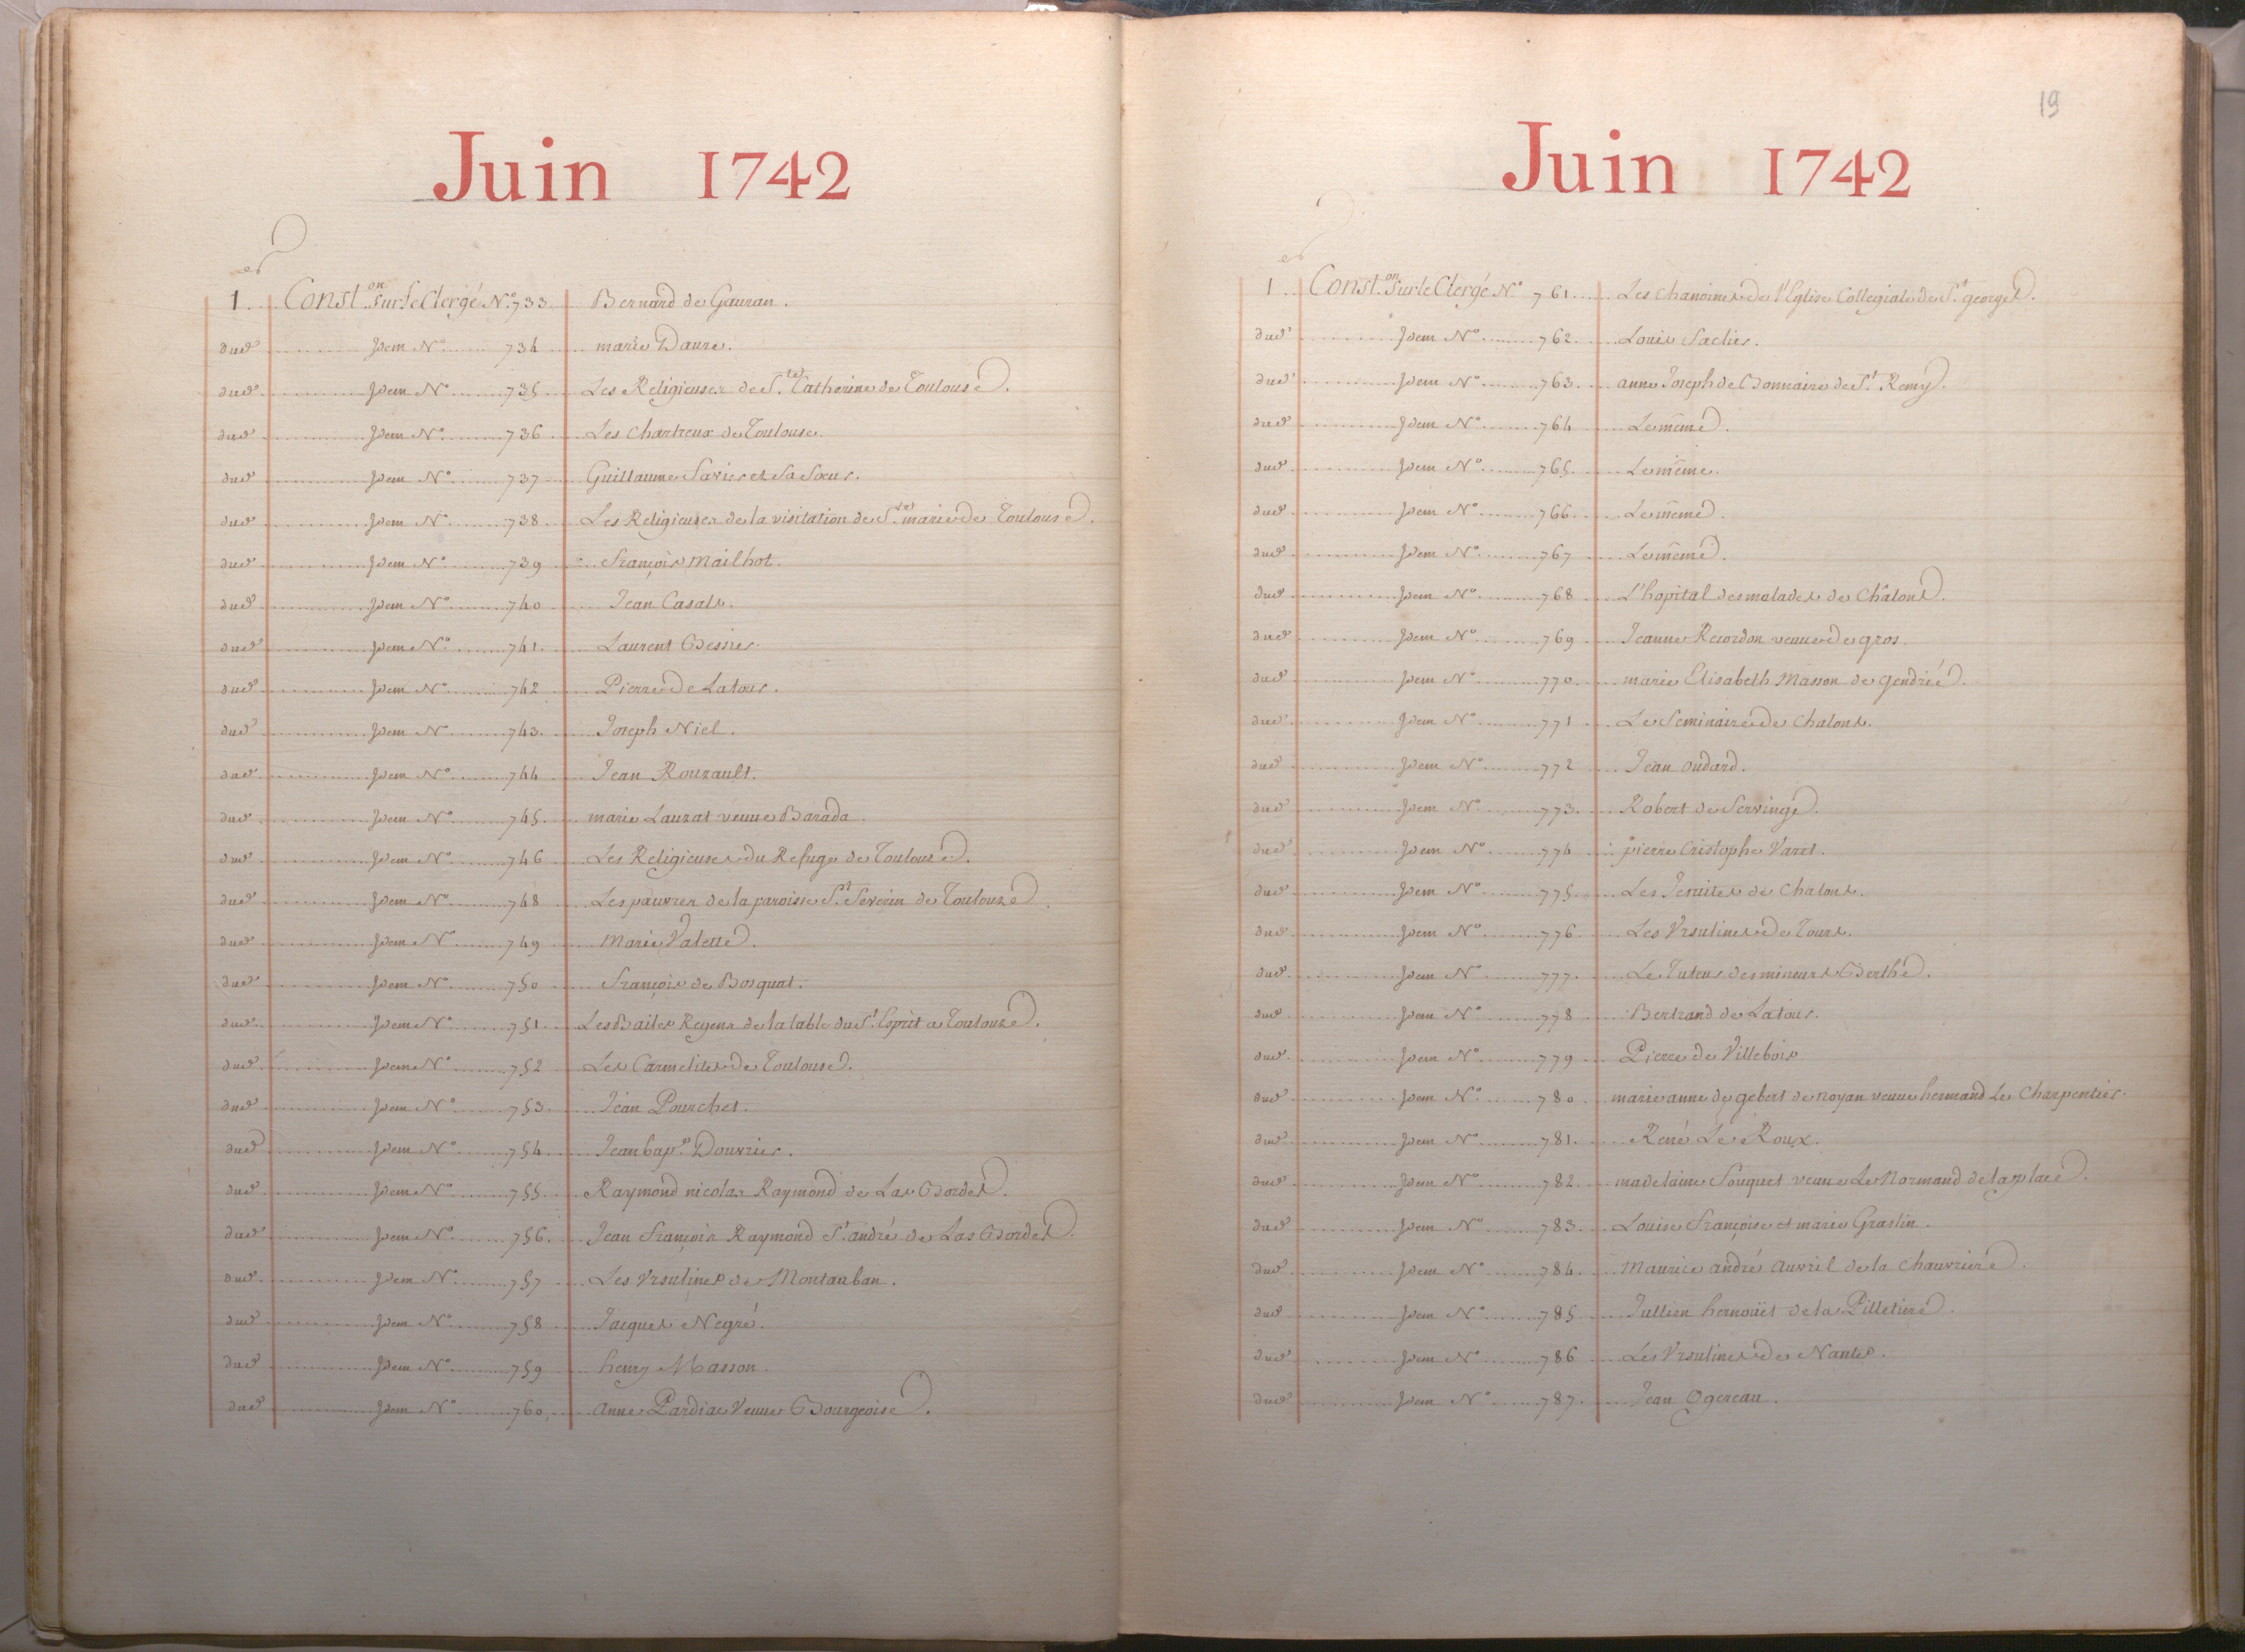 Juin 1742
1er Const.on Sur le Clergé N.o 733 Bernard de Gauran.
dud. Idem N.o 734 marie Daure.
dud. Idem N.o 735 Les Religieuses de S.te Catherine de Toulouse.
dud. Idem N.o 736 Les Chartreux de Toulouse.
dud. Idem N.o 737 Guillaume Savier et Sa Sœur.
dud. Idem N.o 738 Les Religieuses de la visitation de S.te marie de Toulouse.
dud. Idem N.o 739 François Mailhot.
dud. Idem N.o 740 Jean Casals.
dud. Idem N.o 741. Laurent Bessier.
dud. Idem N.o 742 Pierre de Latour.
dud. Idem N.o 743. Joseph Niel.
dud. Idem N.o 744 Jean Rouzault.
dud. Idem N.o 745. marie Lauzat veuve Barada.
dud. Idem N.o 746 Les Religieuses du Refuge de Toulouse.
dud. Idem N.o 748 Les pauvres de la paroisse S.t Severin de Toulouze.
dud. Idem N.o 749 Marie Valette.
dud. Idem N.o 750 François de Bosquat.
dud. Idem N.o 751. Les Bailes Regens de la table du S.t Esprit a Toulouze.
dud. Idem N.o 752 Les Carmelites de Toulouse.
dud. Idem N.o 753. Jean Pourchet.
dud. Idem N.o 754. Jean bap.e Douvrier.
dud. Idem N.o 755. Raymond nicolas Raymond de Las Bordes.
dud. Idem N.o 756. Jean François Raymond S.t andré de Las Bordes.
dud. Idem N.o 757 Les Vrsulines de Montauban.
dud. Idem N.o 758 Jacques Negré.
dud. Idem N.o 759 henry Masson.
dud. Idem N.o 760. anne Pardiac Veuve Bourgeoise.
19
Juin 1742
1er Const.on Sur le Clergé N.o 761 Les chanoines de l'Eglise Collegiale de S.t georges.
dud. Idem N.o 762. Louis Saclier.
dud. Idem N.o 763. anne Joseph de Bonnaire de S.t Remy.
dud. Idem N.o 764 Le même.
dud. Idem N.o 765. Le même.
dud. Idem N.o 766. Le même.
dud. Idem N.o 767 Le même.
dud. Idem N.o 768 L'hopital des malades de Châlons.
dud. Idem N.o 769 Jeanne Recordon veuve de gros.
dud. Idem N.o 770. marie Elisabeth Masson de gendrié.
dud. Idem N.o 771 Le Seminaire de Chalons.
dud. Idem N.o 772 Jean oudard.
dud. Idem N.o 773. Robert de Servinge.
dud. Idem N.o 774 pierre Cristophe Varet.
dud. Idem N.o 775. Les Jesuites de Chalons.
dud. Idem N.o 776 Les Vrsulines de Tours.
dud. Idem N.o 777. Le Tuteur des mineurs Berthé.
dud. Idem N.o 778 Bertrand de Latour.
dud. Idem N.o 779 Pierre de Villebois
dud. Idem N.o 780. marie anne de gebert de noyan veuve hermand Le Charpentier.
dud. Idem N.o 781. René Le Roux.
dud. Idem N.o 782. madelaine Souquet veuve Le Normand de la place.
dud. Idem N.o 783. Louise Françoise et marie Graslin.
dud. Idem N.o 784. Maurice andré Auvril de la Chauvriere.
dud. Idem N.o 785 Jullien hernoüet de la Pilletiere.
dud. Idem N.o 786 Les Vrsulines de Nantes.
dud. Idem N.o 787. Jean Ogereau.